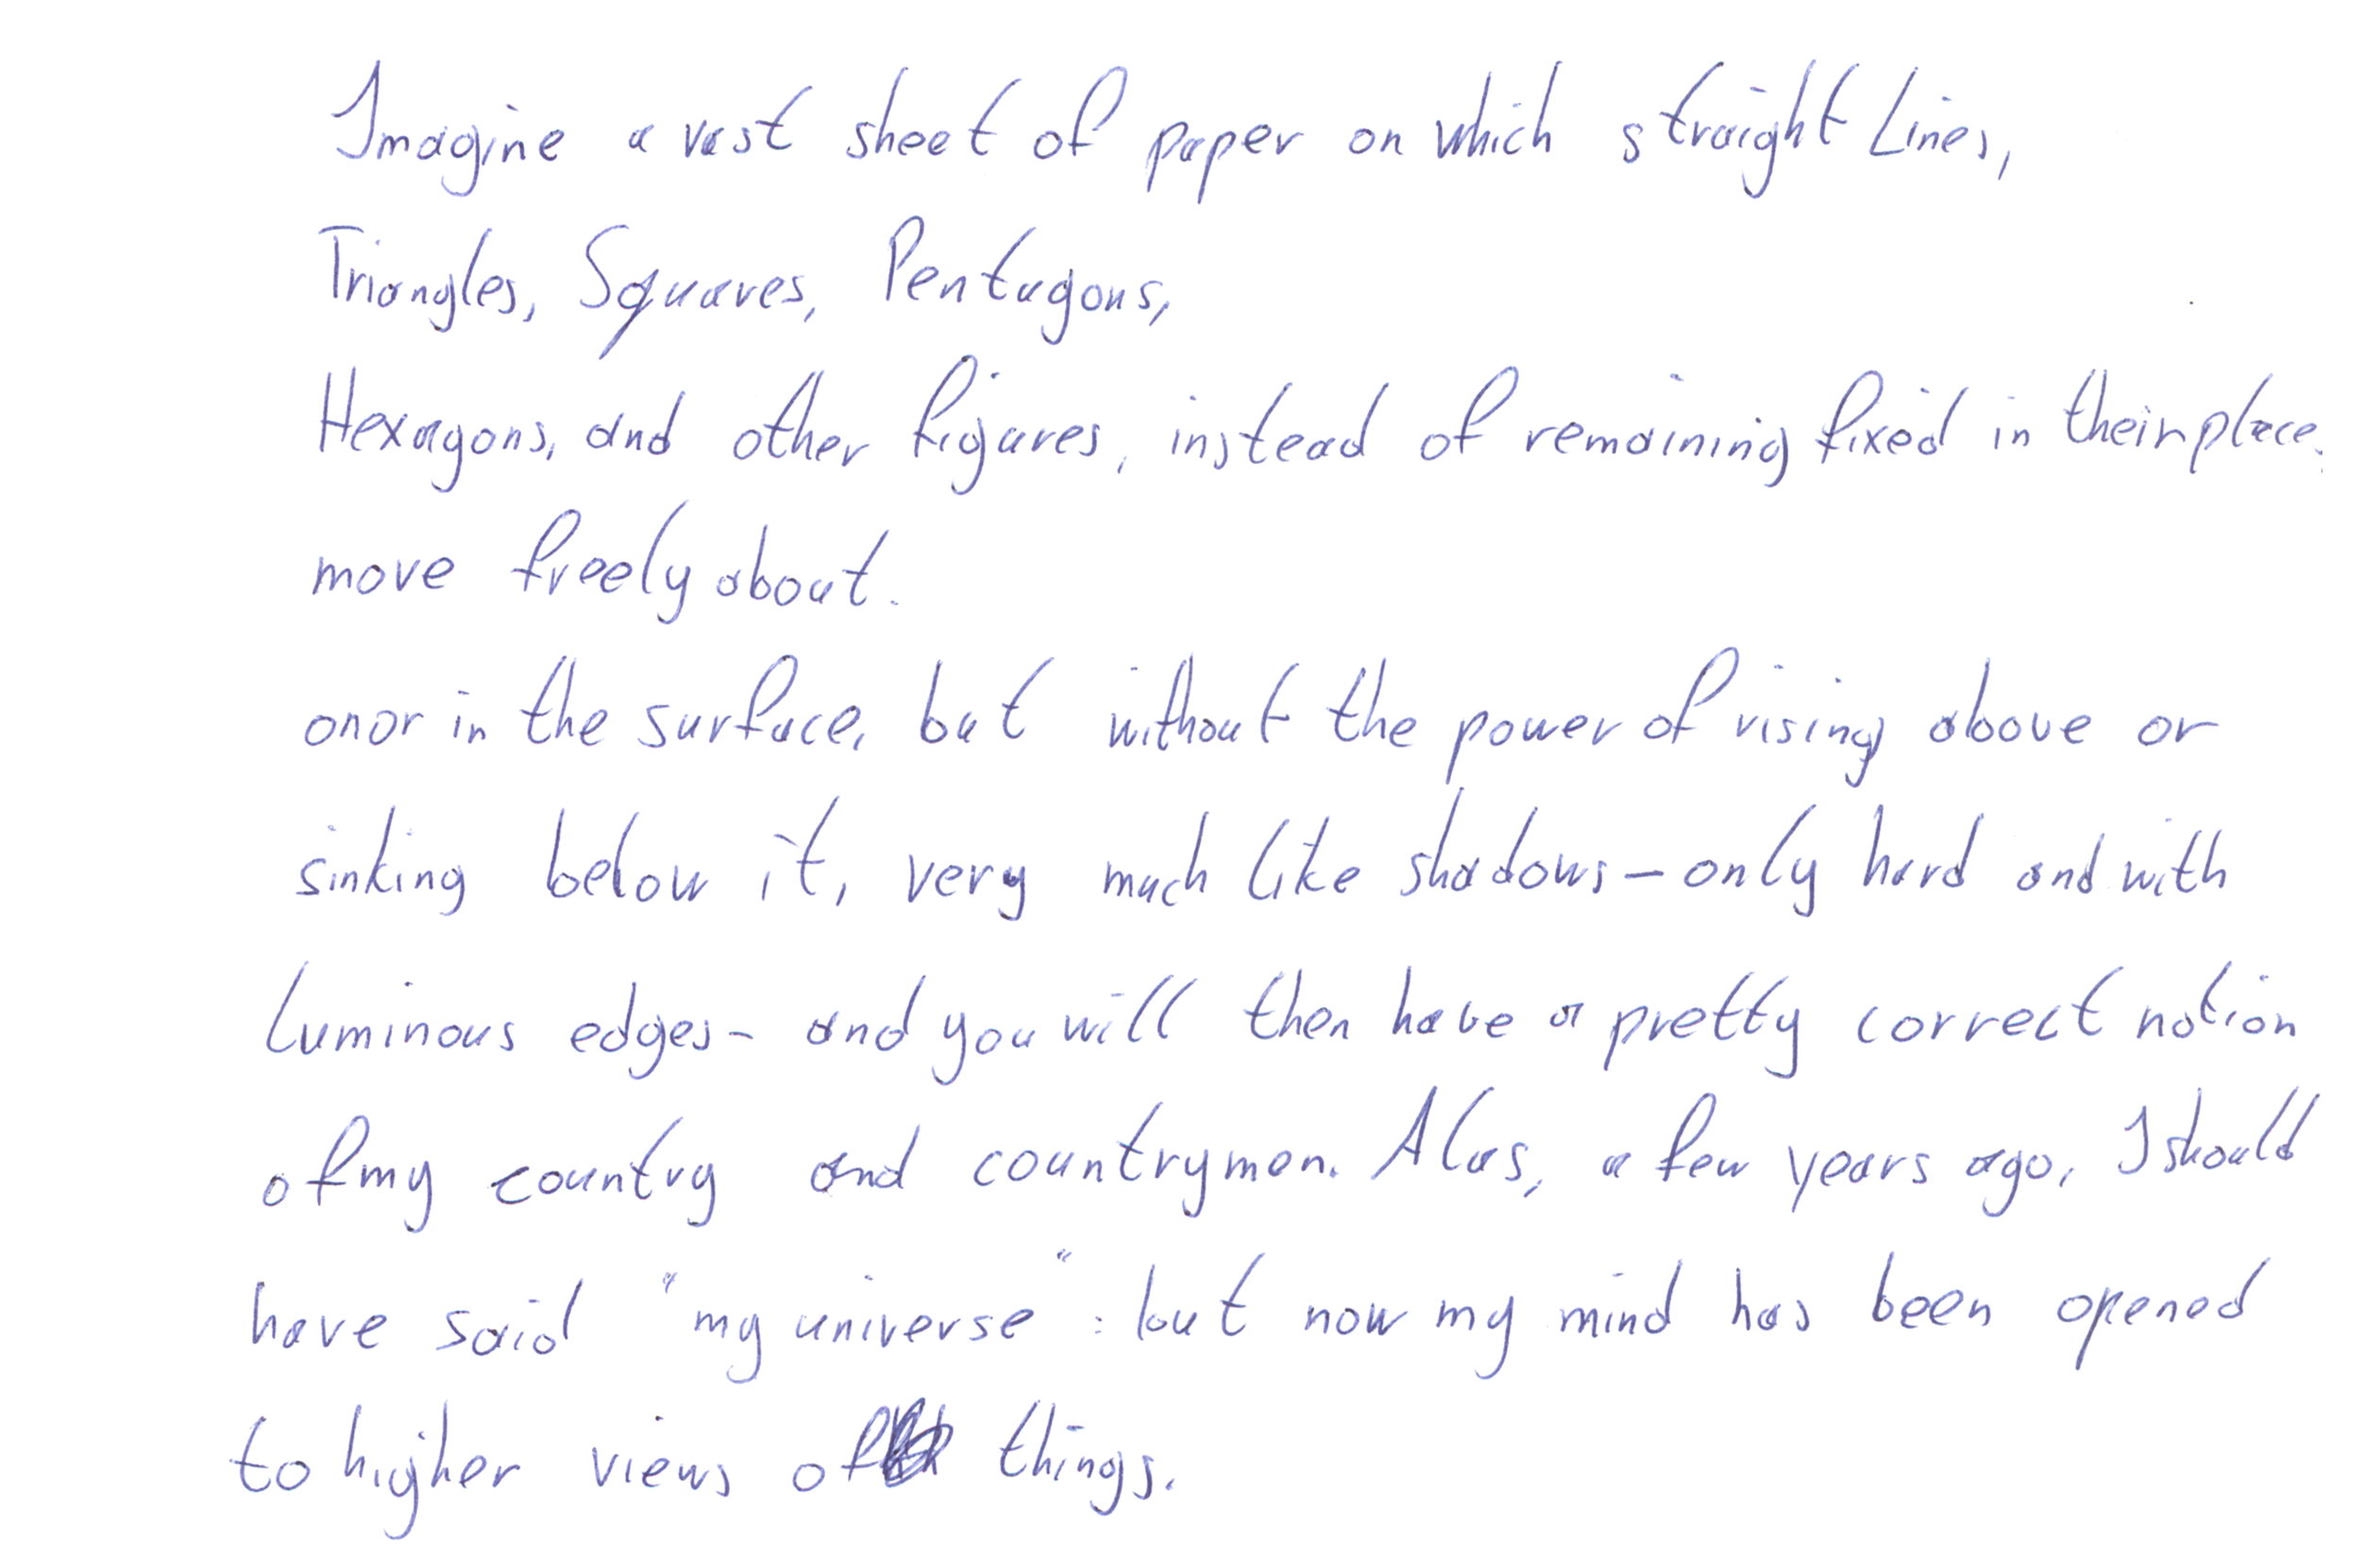 Imagine a vast sheet of paper on which straight Lines,
Triangles, Squares, Pentagons,
Hexagons, and other figures, instead of remaining fixed in their place,
move freely about.
on or in the surface, but without the power of rising above or
sinking below it, very much like shadows - only hard and with
luminous edges - and you will then have a pretty correct notion
of my country and countrymen. Alas, a few years ago, I should
have said "my universe": but now my mind has been opened
to higher views of things.